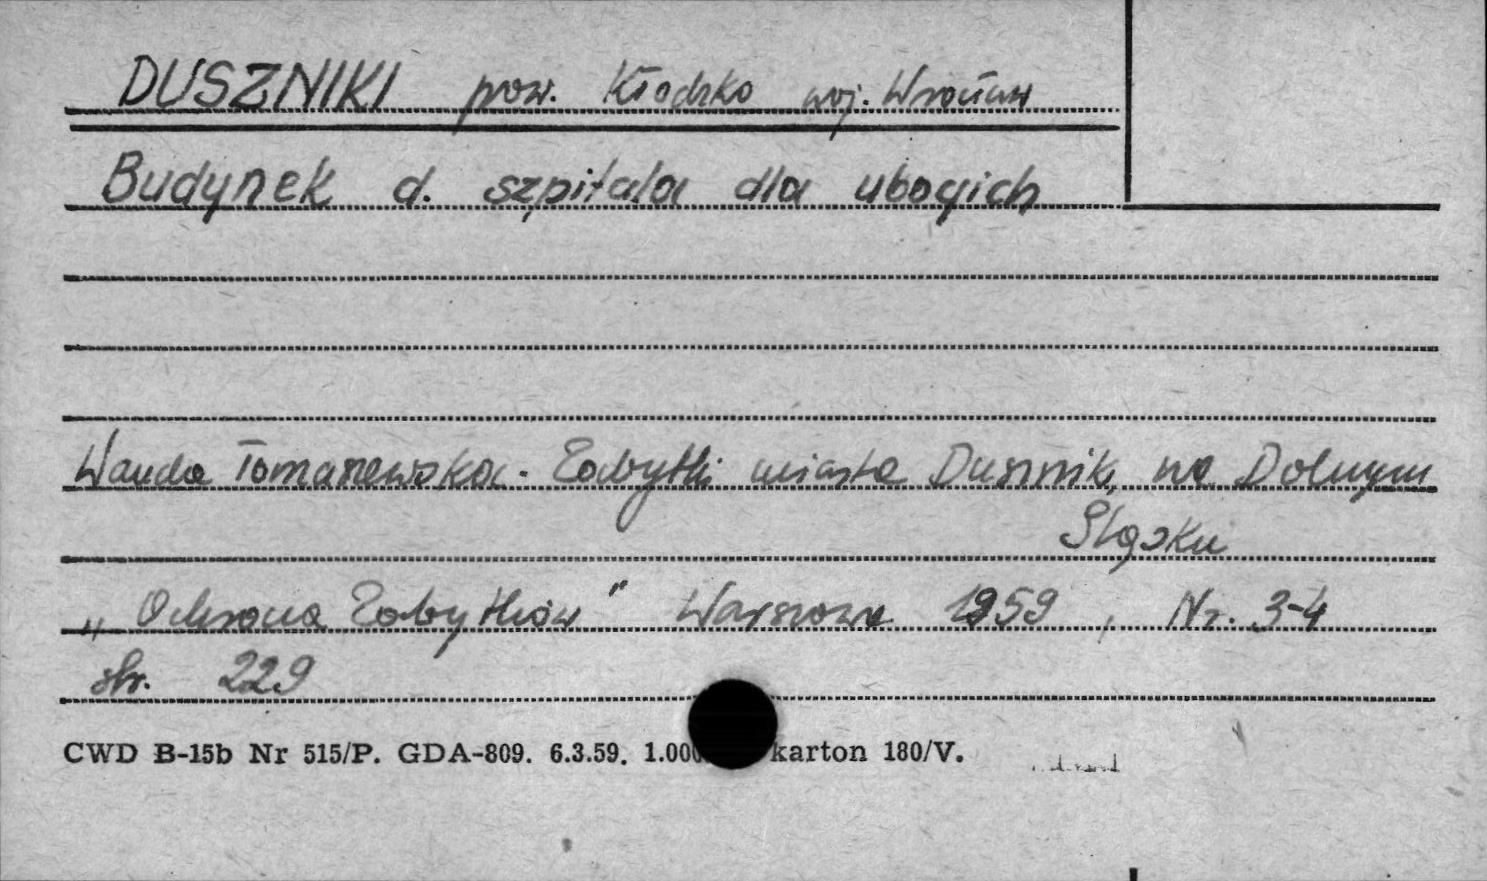 DUSZNIKI pow. Kłodzko woj. Wrocław
Budynek d. szpitala dla ubogich
Wanda Tomaszewska. Zabytki miasta Dusznik, na Dolnym
Śląsku
„Ochrona Zabytków" Warszawa 1959, Nr. 3-4
str. 229
CWD B-15b Nr 515/P. GDA-809. 6.3.59. 1.000 karton 180/V.